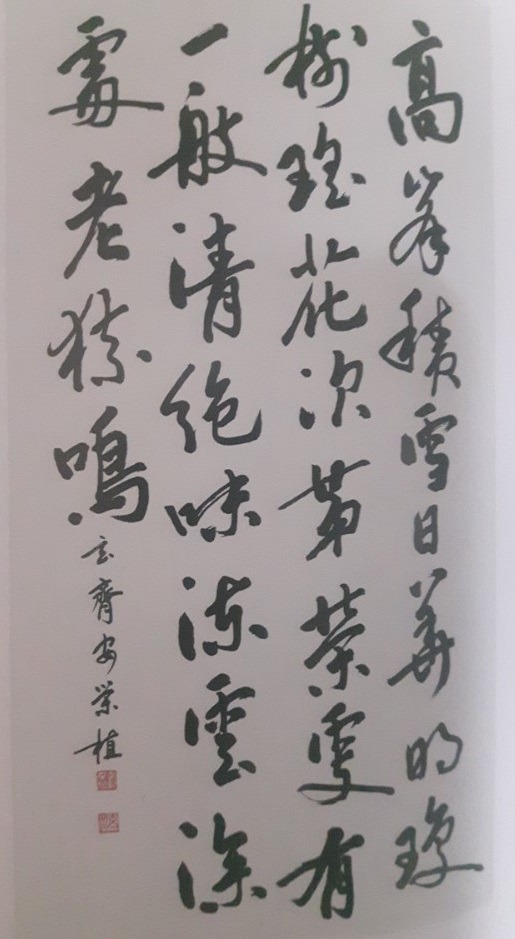 高峯積雪日華明瓊
樹瑤花次第榮更有
一般清絕味凍雲深
處老猿鳴
玄齋安榮植